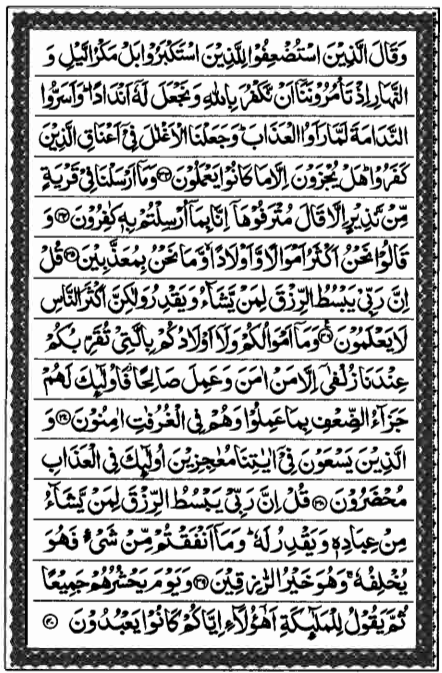 وَقَالَ الَّذِيْنَ اسْتُضْعِفُوْا لِلَّذِيْنَ اسْتَكْبَرُوْا بَلْ مَكْرُ الَّيْلِ وَ
النَّهَارِ اِذْ تَاْمُرُوْنَنَاۤ اَنْ نَّكْفُرَ بِاللّٰهِ وَنَجْعَلَ لَهٗۤ اَنْدَادًا ؕ وَاَسَرُّوا
النَّدَامَةَ لَمَّا رَاَوُا الْعَذَابَ ؕ وَجَعَلْنَا الْاَغْلٰلَ فِیْۤ اَعْنَاقِ الَّذِيْنَ
كَفَرُوْا ؕ هَلْ يُجْزَوْنَ اِلَّا مَا كَانُوْا يَعْمَلُوْنَ ﴿۳۳﴾ وَمَاۤ اَرْسَلْنَا فِیْ قَرْيَةٍ
مِّنْ نَّذِيْرٍ اِلَّا قَالَ مُتْرَفُوْهَاۤ اِنَّا بِمَاۤ اُرْسِلْتُمْ بِهٖ كٰفِرُوْنَ ﴿۳۴﴾ وَ
قَالُوْا نَحْنُ اَكْثَرُ اَمْوَالًا وَّاَوْلَادًا ۙ وَّمَا نَحْنُ بِمُعَذَّبِيْنَ ﴿۳۵﴾ قُلْ
اِنَّ رَبِّیْ يَبْسُطُ الرِّزْقَ لِمَنْ يَّشَآءُ وَيَقْدِرُ وَلٰكِنَّ اَكْثَرَ النَّاسِ
لَا يَعْلَمُوْنَ ﴿۳۶﴾ وَمَاۤ اَمْوَالُكُمْ وَلَاۤ اَوْلَادُكُمْ بِالَّتِیْ تُقَرِّبُكُمْ
عِنْدَنَا زُلْفٰۤی اِلَّا مَنْ اٰمَنَ وَعَمِلَ صَالِحًا ؗ فَاُولٰٓئِكَ لَهُمْ
جَزَآءُ الضِّعْفِ بِمَا عَمِلُوْا وَهُمْ فِی الْغُرُفٰتِ اٰمِنُوْنَ ﴿۳۷﴾ وَ
الَّذِيْنَ يَسْعَوْنَ فِیْۤ اٰيٰتِنَا مُعٰجِزِيْنَ اُولٰٓئِكَ فِی الْعَذَابِ
مُحْضَرُوْنَ ﴿۳۸﴾ قُلْ اِنَّ رَبِّیْ يَبْسُطُ الرِّزْقَ لِمَنْ يَّشَآءُ
مِنْ عِبَادِهٖ وَيَقْدِرُ لَهٗ ؕ وَمَاۤ اَنْفَقْتُمْ مِّنْ شَیْءٍ فَهُوَ
يُخْلِفُهٗ ۚ وَهُوَ خَيْرُ الرّٰزِقِيْنَ ﴿۳۹﴾ وَيَوْمَ يَحْشُرُهُمْ جَمِيْعًا
ثُمَّ يَقُوْلُ لِلْمَلٰٓئِكَةِ اَهٰۤؤُلَآءِ اِيَّاكُمْ كَانُوْا يَعْبُدُوْنَ ﴿۴۰﴾